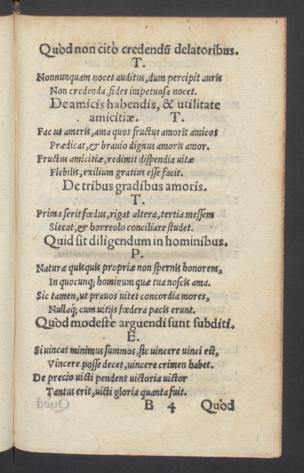 Quòd non citò credendũ delatoribus.
T.
Nonnunquam nocet auditus, dum percipit auris
Non credenda, fides impetuosa nocet.
De amicis habendis, & utilitate
amicitiæ. T.
Fac ut ameris, ama quos fructus amoris amicos
Prædicat, & brauio dignus amoris amor.
Fructus amicitiæ, redimit dispendia uitæ
Flebilis, exilium gratius esse facit.
De tribus gradibus amoris.
T.
Prima serit fœdus, rigat altera, tertia messem
Siccat, & horreolo conciliare studet.
Quid sit diligendum in hominibus.
P.
Naturæ quisquis propriæ non spernis honorem,
In quocunq; hominum quæ tua noscis ama.
Sic tamen, ut prauos uitet concordia mores,
Nullaq́; cum uitijs fœdera pacis erunt.
Quòd modestè arguendi sunt subditi.
E.
Si uincat minimus summos, sic uincere uinci est,
Vincere posse decet, uincere crimen habet.
De precio uicti pendent uictoria uictor
Tantus erit, uicti gloria quanta fuit.
B 4 Quòd